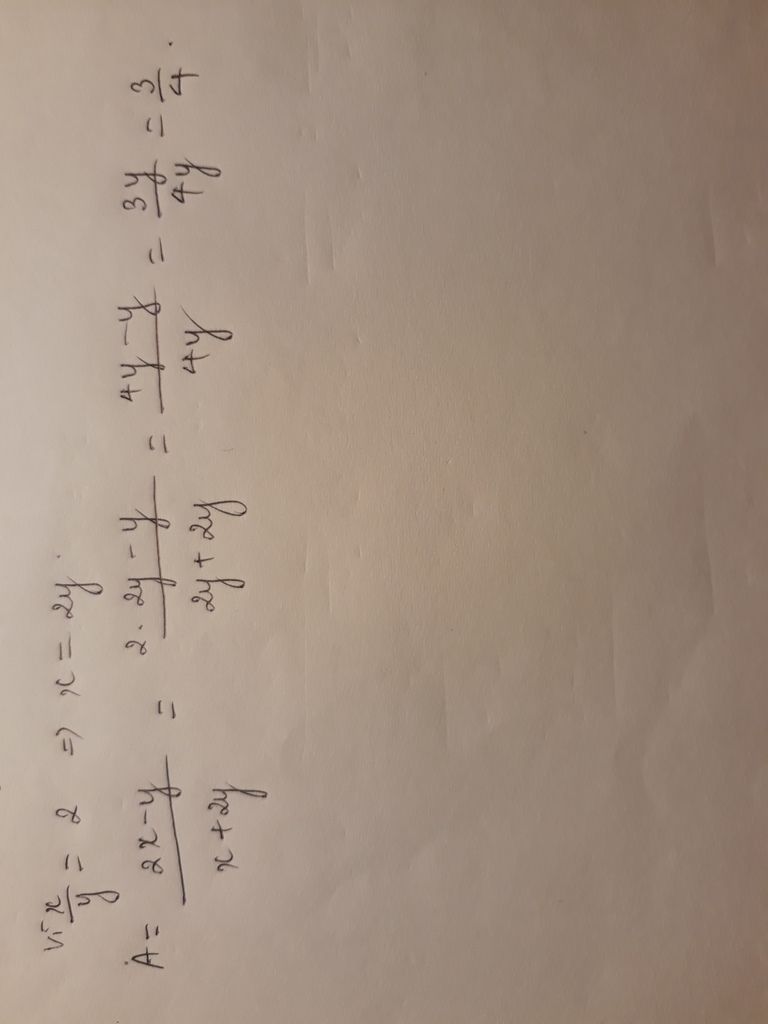 vì x/y = 2 => x = 2y.
A = (2x - y)/(x + 2y) = (2 . 2y - y)/(2y + 2y) = (4y - y)/(4y) = 3y/4y = 3/4.